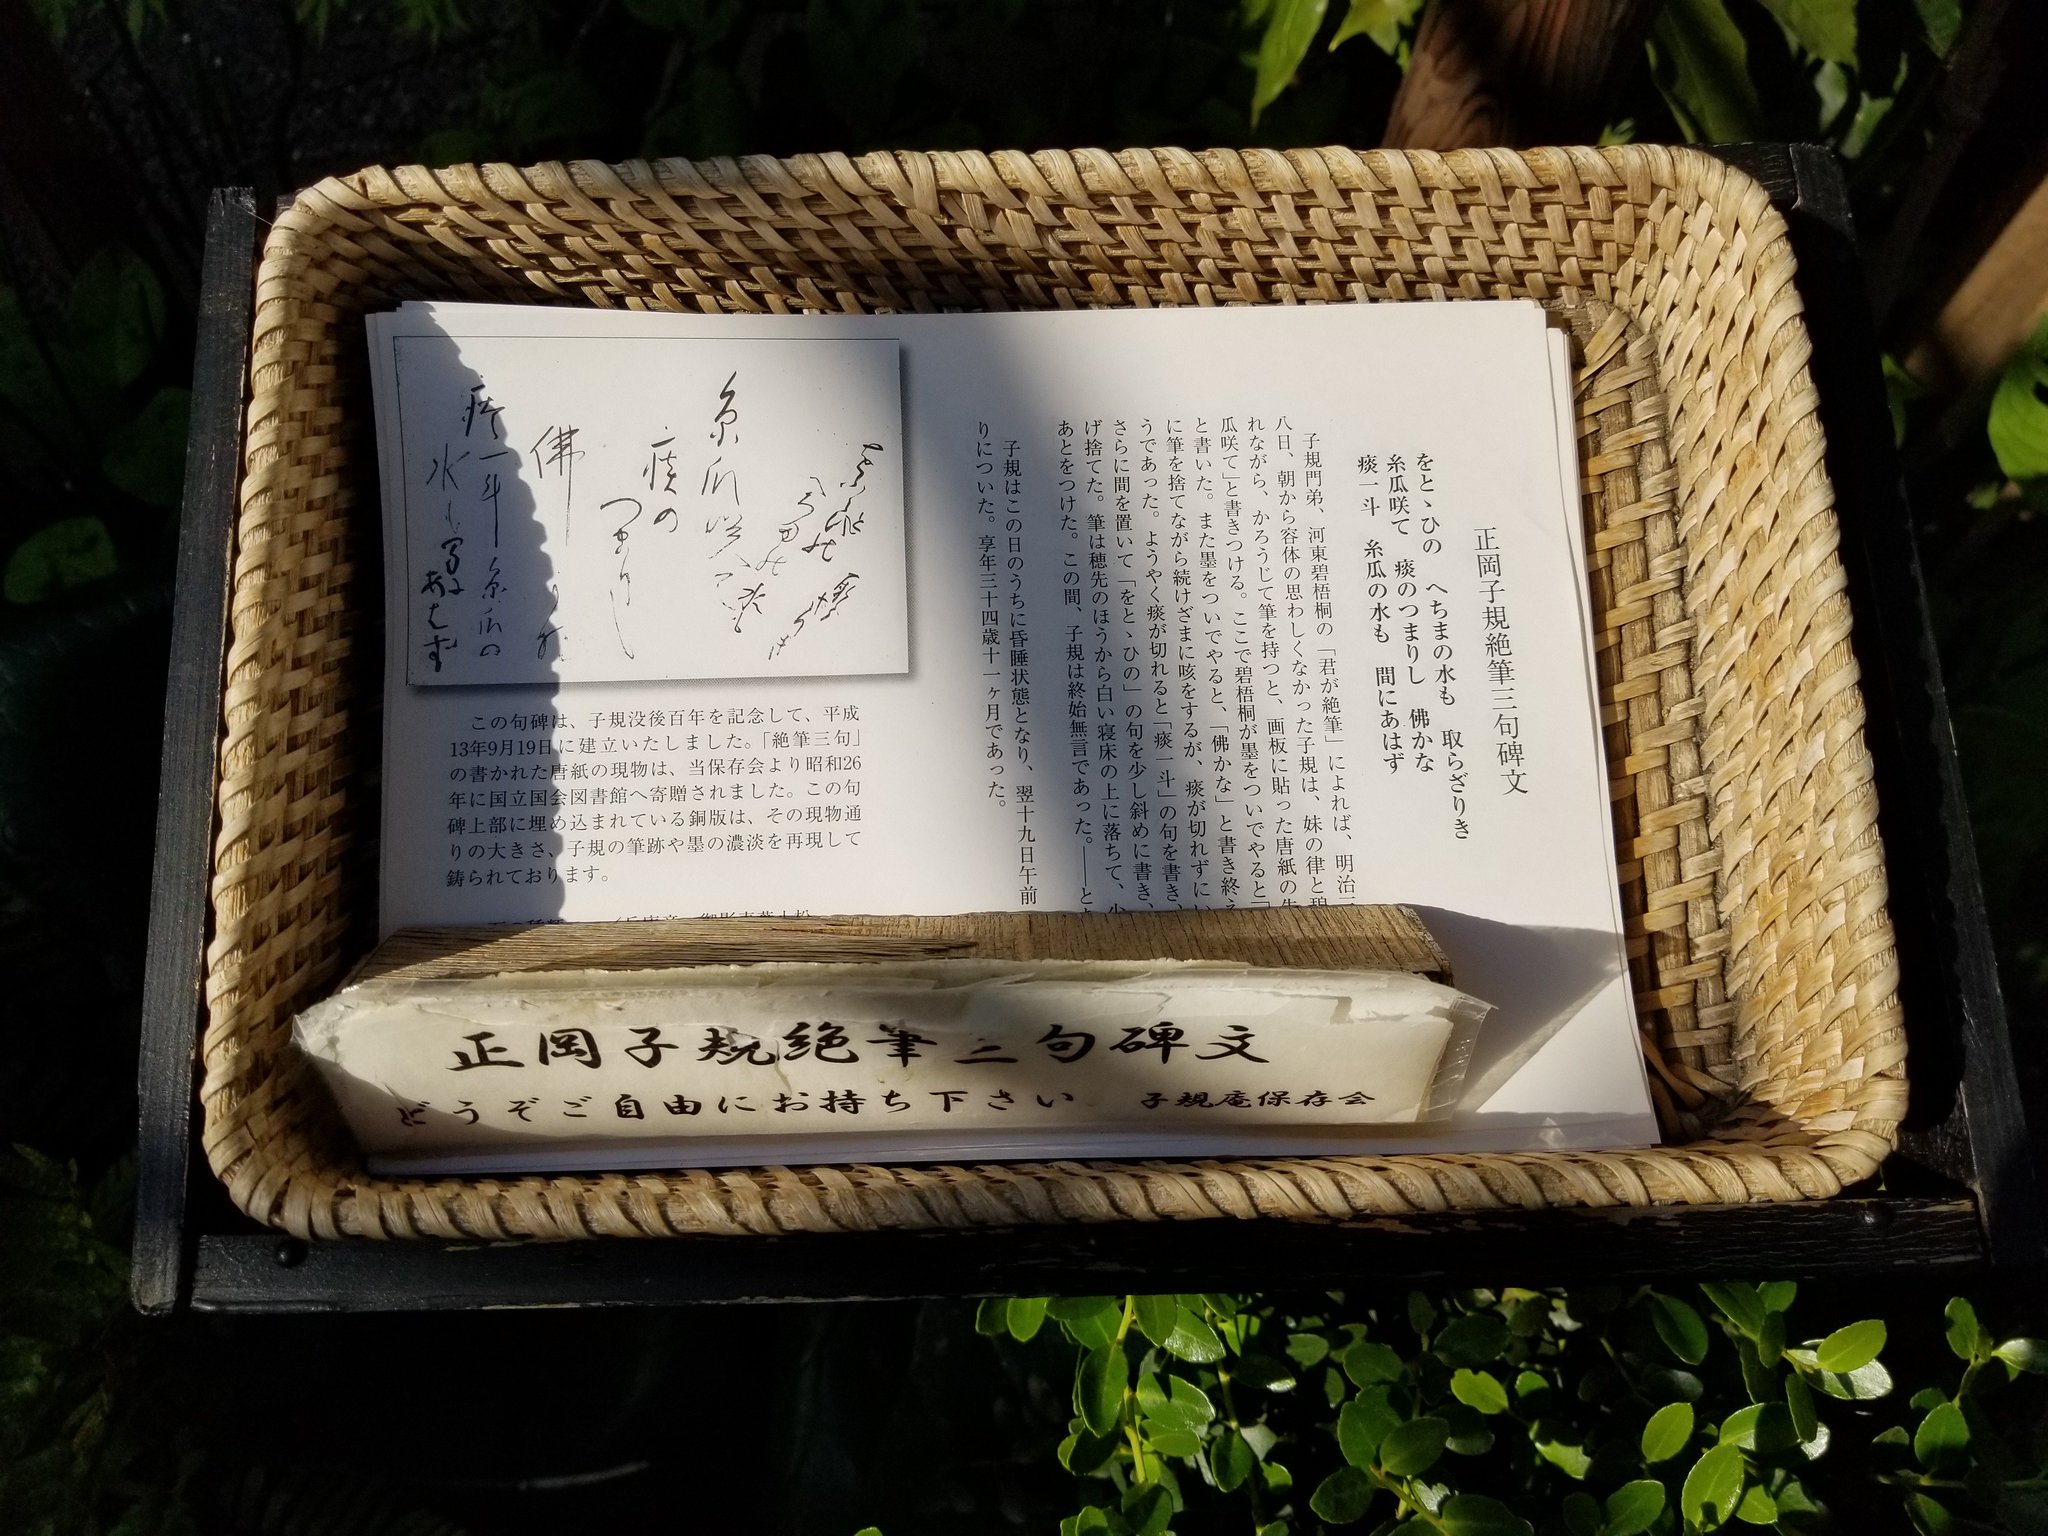 正岡子規絶筆三句碑文
をとゝひの へちまの水も 取らざりき
糸瓜咲て 痰のつまりし 佛かな
痰一斗 糸瓜の水も 間にあはず
子規門弟、河東碧梧桐の「君が絶筆」によれば、明治三
八日、朝から容体の思わしくなかった子規は、妹の律と碧
れながら、かろうじて筆を持つと、画板に貼った唐紙の
瓜咲て」と書きつける。ここで碧梧桐が墨をついでやると「
と書いた。また墨をついでやると、「佛かな」と書き終え
に筆を捨てながら続けざまに咳をするが、痰が切れずに
うであった。ようやく痰が切れると「痰一斗」の句を書き、
さらに間を置いて「をとゝひの」の句を少し斜めに書き、
げ捨てた。筆は穂先のほうから白い寝床の上に落ちて、少
あとをつけた。この間、子規は終始無言であった。――と
子規はこの日のうちに昏睡状態となり、翌十九日午前
りについた。享年三十四歳十一ヶ月であった。
をとゝひの
へちまの
水も
取らざりき
糸瓜咲て
痰の
つまりし
佛
かな
痰一斗
糸瓜の
水も
間に
あはず
この句碑は、子規没後百年を記念して、平成
13年9月19日に建立いたしました。「絶筆三句」
の書かれた唐紙の現物は、当保存会より昭和26
年に国立国会図書館へ寄贈されました。この句
碑上部に埋め込まれている銅版は、その現物通
りの大きさ、子規の筆跡や墨の濃淡を再現して
鋳られております。
正岡子規絶筆三句碑文
どうぞご自由にお持ち下さい 子規庵保存会